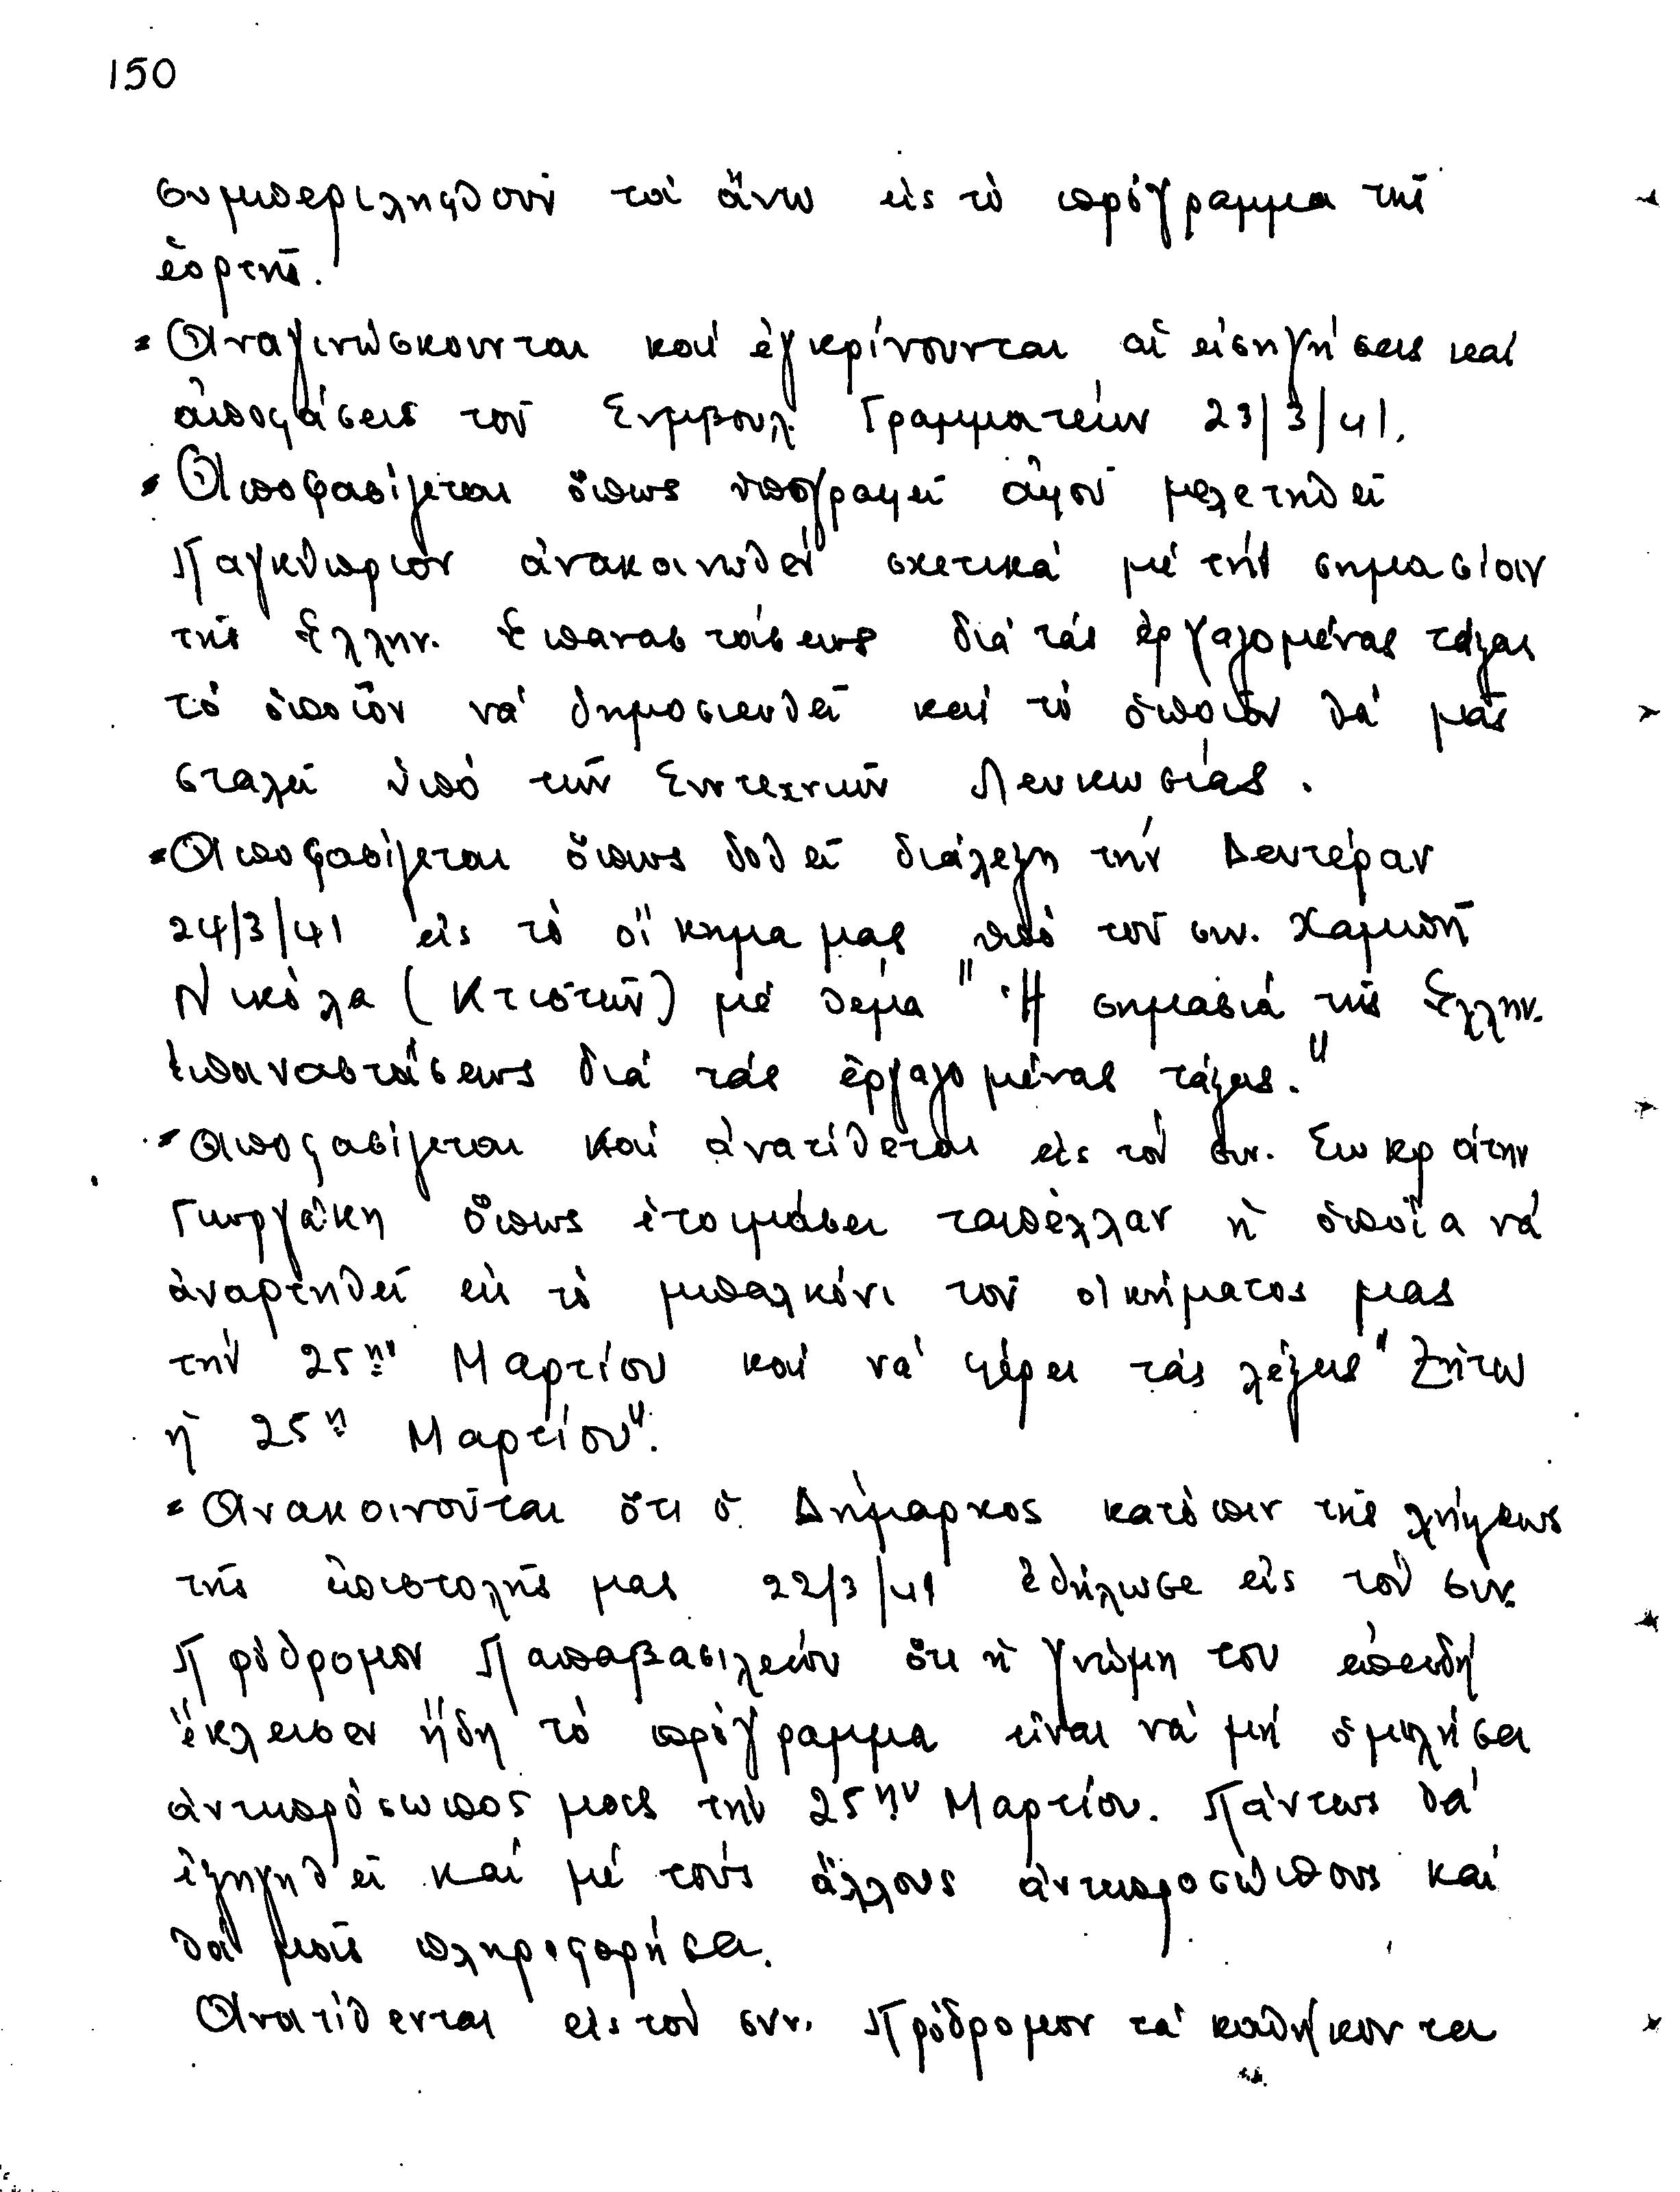 150
συμπεριληφθοῦν τά ἄνω εἰς τό πρόγραμμα τῆς
ἑορτῆς.
= Ἀναγινώσκουνται καί ἐγκρίνουνται αἱ εἰσηγήσεις καί
ἀποφάσεις τοῦ Συμβουλ. Γραμματέων 23/3/41.
= Ἀποφασίζεται ὅπως ὑπογραφεῖ ἀφοῦ μελετηθεῖ
Παγκύπριον ἀνακοινωθέν σχετικά μέ τήν σημασίαν
τῆς Ἑλλην. Ἐπαναστάσεως διά τάς ἐργαζομένας τάξεις
τό ὁποῖον νά δημοσιευθεῖ καί τό ὁποῖον θά μᾶς
σταλεῖ ὑπό τῶν Συντεχνιῶν Λευκωσίας.
= Ἀποφασίζεται ὅπως δοθεῖ διάλεξη τήν Δευτέραν
24/3/41 εἰς τό οἴκημα μας ὑπό τοῦ συν. Χαμπῆ
Νικόλα (Κτιστῶν) μέ θέμα " Ἡ σημασιά τῆς Ἑλλην.
Ἐπαναστάσεως διά τάς ἐργαζομένας τάξεις."
= Ἀποφασίζεται καί ἀνατίθεται εἰς τόν συν. Σωκράτην
Γιωργάκη ὅπως ἑτοιμάσει ταπέλλαν ἡ ὁποῖα νά
ἀναρτηθεῖ εἰς τό μπαλκόνι τοῦ οἰκήματος μας
τήν 25ην Μαρτίου καί νά φέρει τάς λέξεις "Ζήτω
ἡ 25η Μαρτίου".
= Ἀνακοινοῦται ὅτι ὁ Δήμαρχος κατόπιν τῆς λήψεως
τῆς ἐπιστολῆς μας 22/3/41 ἐδήλωσε εἰς τόν συν.
Πρόδρομον Παπαβασιλείου ὅτι ἡ γνώμη του ἐπειδή
ἔκλεισεν ἤδη τό πρόγραμμα εἶναι νά μή ὁμιλήσει
ἀντιπρόσωπος μας τήν 25ην Μαρτίου. Πάντως θά
ἐξηγηθεῖ καί μέ τούς ἄλλους ἀντιπροσώπους καί
θά μᾶς πληροφορήσει.
Ἀνατίθενται εἰς τόν συν. Πρόδρομον τά καθήκοντα